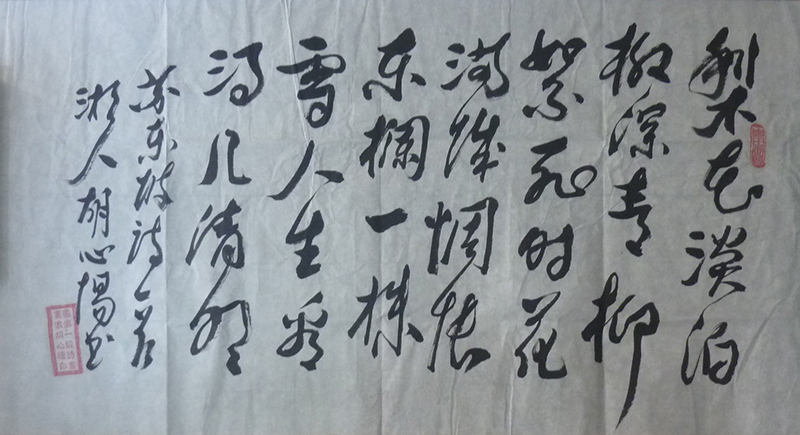 梨花淡泊
柳深青柳
絮飞时花
满城惆怅
东欄一株
雪人生看
得几清明
苏东坡诗一首
湘人胡心陽书